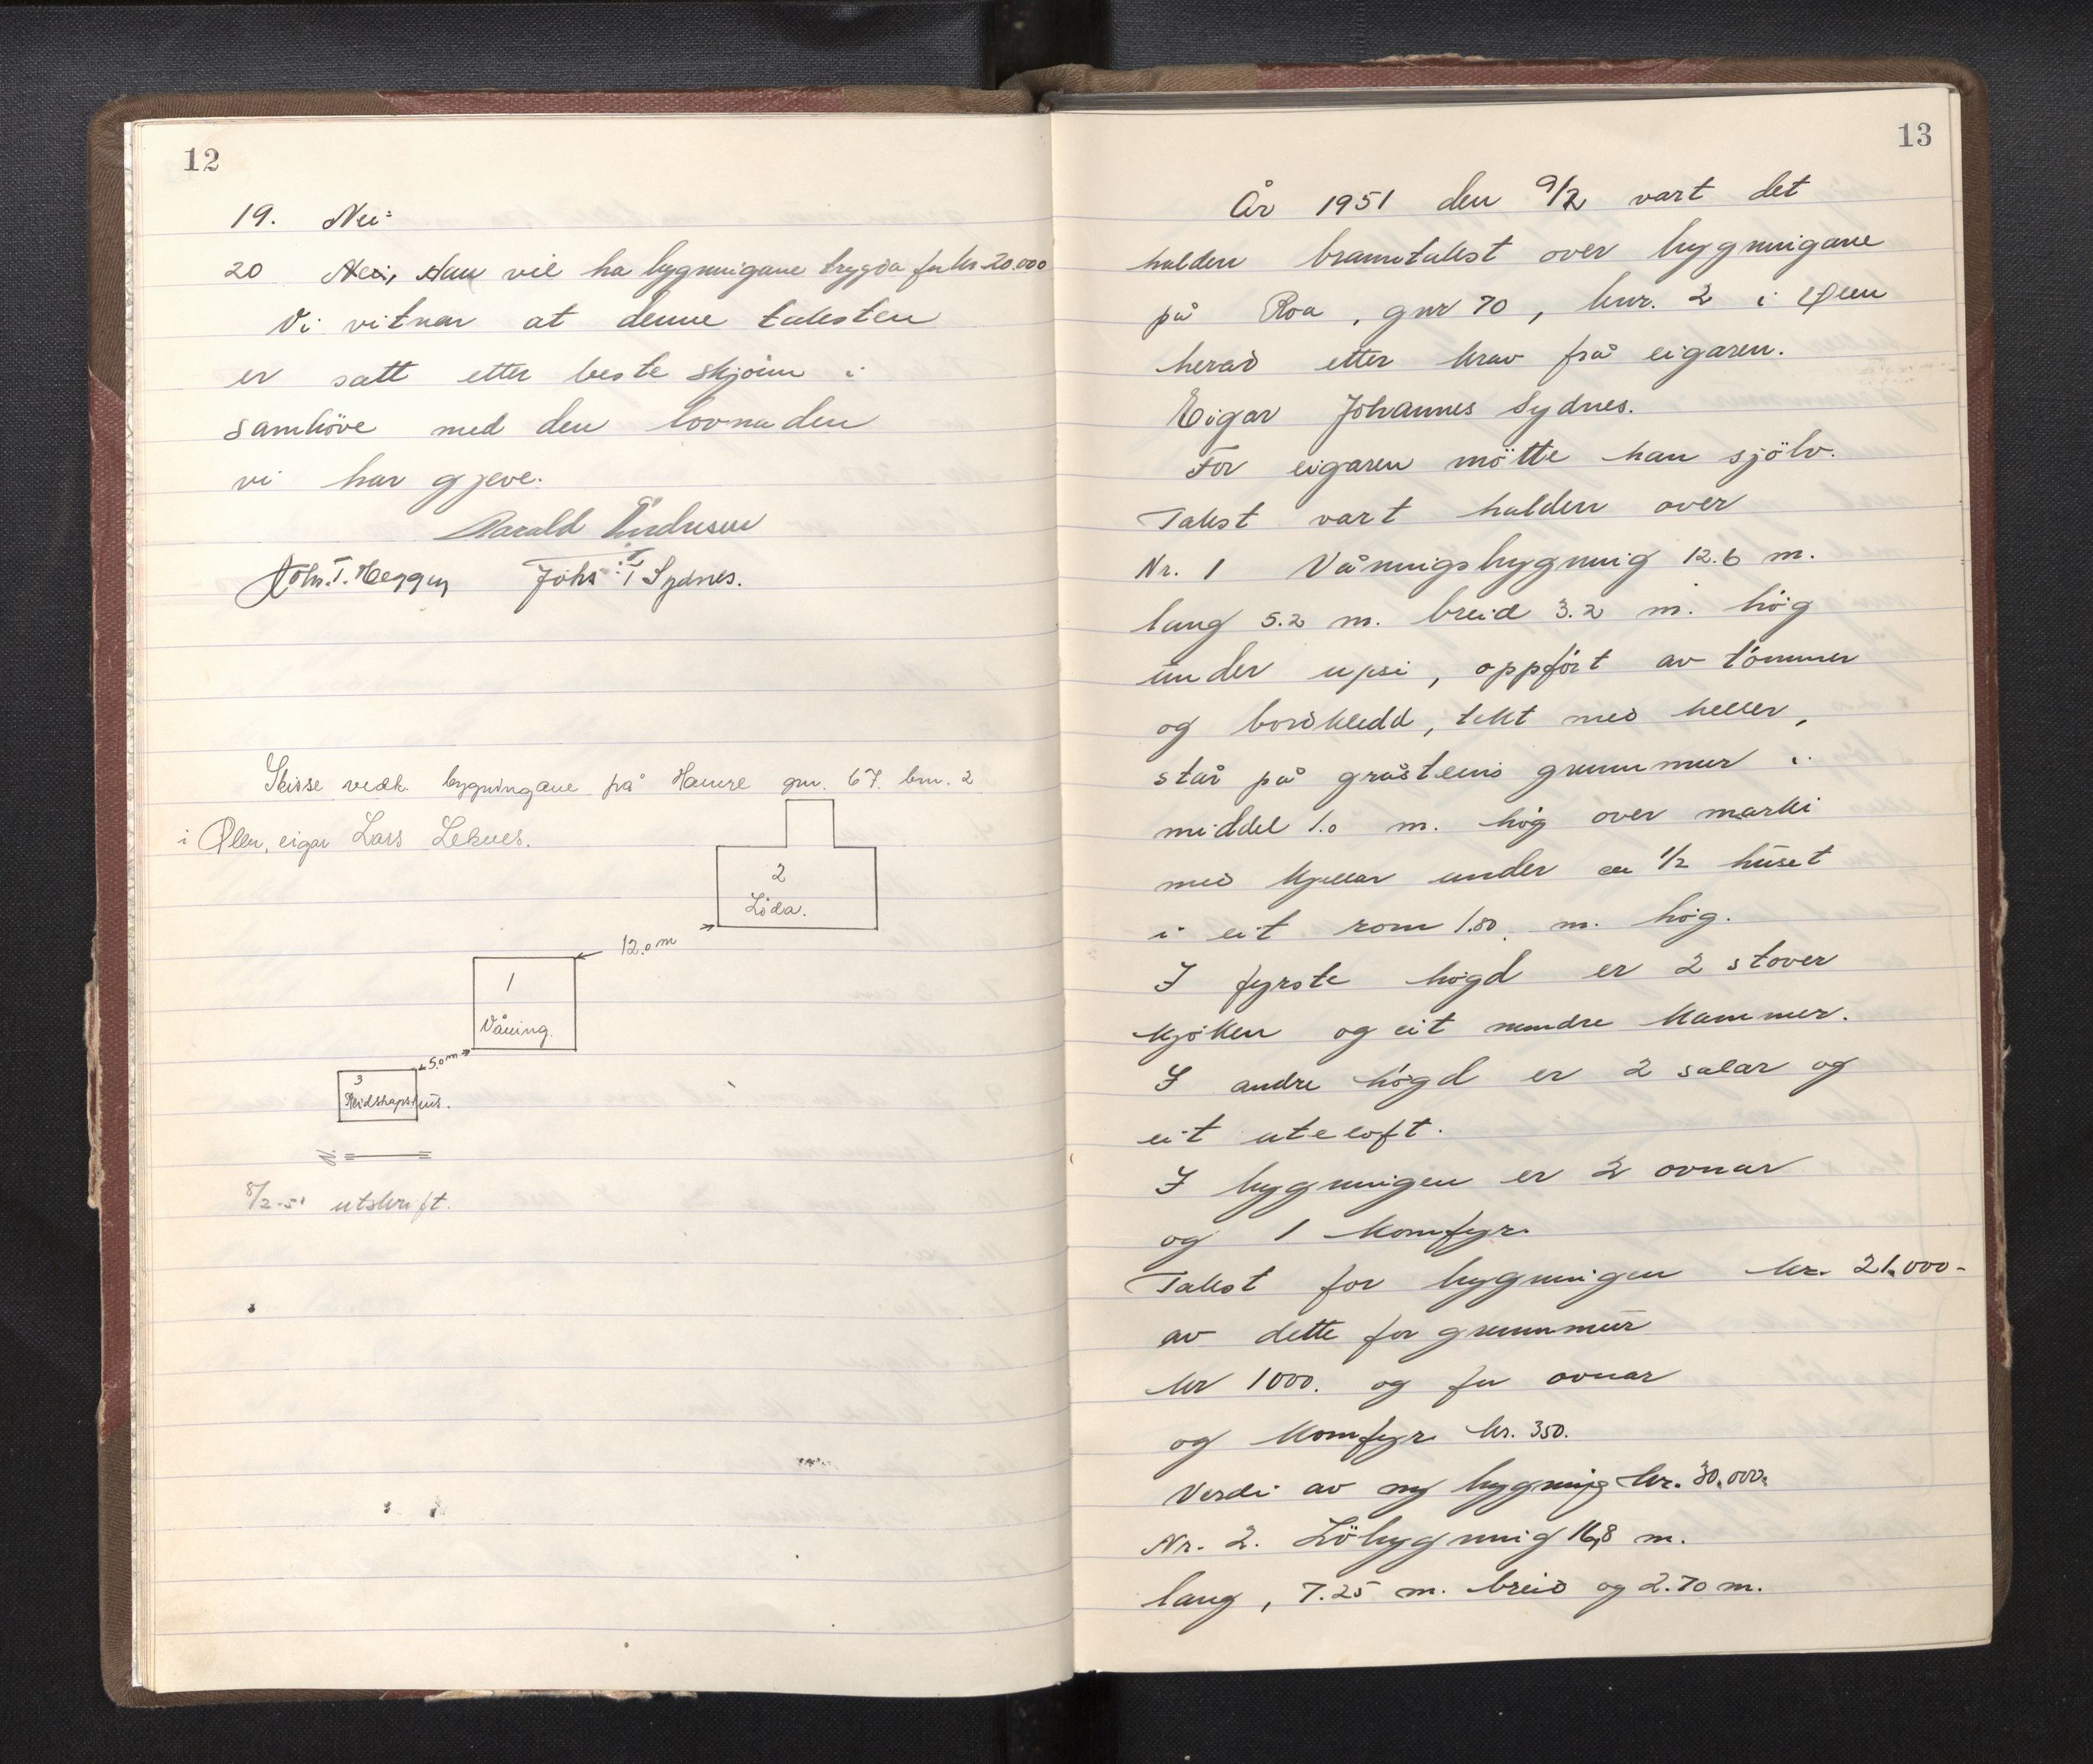 12
19. Nei
20 Nei, Han vil ha bygningane trygda for kr. 20.000
Vi vitnar at denne taksten
er satt etter beste skjönn i
samhöve med den lovnaden
vi har gjeve.
Harald Endresen
Johs. T. Sydnes.
Skisse vedk. bygningane på Hamre gnr. 67. bnr. 2
i Ølen, eigar Lars Leknes.
2
Löda.
12.0 m
1
Våning.
5.0 m
3
Reidskapshus.
N.
8/2-51 utskrift.
13
År 1951 den 9/2 vart det
halden branntakst over bygningane
på Roa, gnr 70, bnr. 2 i Ølen
herad etter krav frå eigaren.
Eigar Johannes Sydnes.
For eigaren mötte han sjölv.
Takst vart halden over
Nr. 1 Våningsbygning 12.6 m.
lang 5.2 m. breid 3.2 m. hög
under upsi, oppfört av tömmer
og bordkledd, tekt med heller,
står på gråsteins grunnmur i
middel 1.0 m. hög over marki
med kjellar under ca 1/2 huset
i eit rom 1.80 m. hög.
I fyrste högd er 2 stover
kjöken og eit mindre kammer.
I andre högd er 2 salar og
eit uteloft.
I bygningen er 2 ovnar
og 1 komfyr.
Takst for bygningen kr. 21.000-
av dette for grunnmur
kr 1000. og for ovnar
og komfyr kr. 350.
Verdi av ny bygning kr. 30.000.
Nr. 2. Löbygning 16,8 m.
lang, 7.25 m. breid og 2.70 m.